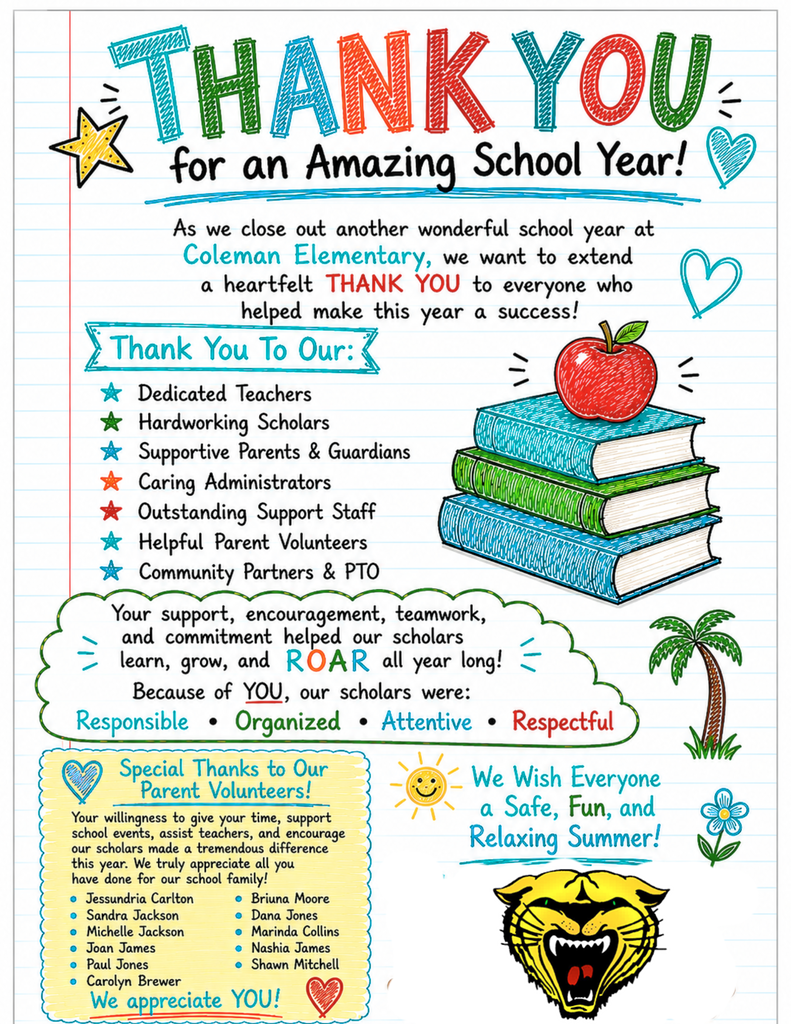 THANK YOU
for an Amazing School Year!
As we close out another wonderful school year at
Coleman Elementary, we want to extend
a heartfelt THANK YOU to everyone who
helped make this year a success!
Thank You To Our:
Dedicated Teachers
Hardworking Scholars
Supportive Parents & Guardians
Caring Administrators
Outstanding Support Staff
Helpful Parent Volunteers
Community Partners & PTO
Your support, encouragement, teamwork,
and commitment helped our scholars
learn, grow, and ROAR all year long!
Because of YOU, our scholars were:
Responsible • Organized • Attentive • Respectful
Special Thanks to Our
Parent Volunteers!
Your willingness to give your time, support
school events, assist teachers, and encourage
our scholars made a tremendous difference
this year. We truly appreciate all you
have done for our school family!
• Jessundria Carlton
• Sandra Jackson
• Michelle Jackson
• Joan James
• Paul Jones
• Carolyn Brewer
• Briuna Moore
• Dana Jones
• Marinda Collins
• Nashia James
• Shawn Mitchell
We appreciate YOU!
We Wish Everyone
a Safe, Fun, and
Relaxing Summer!